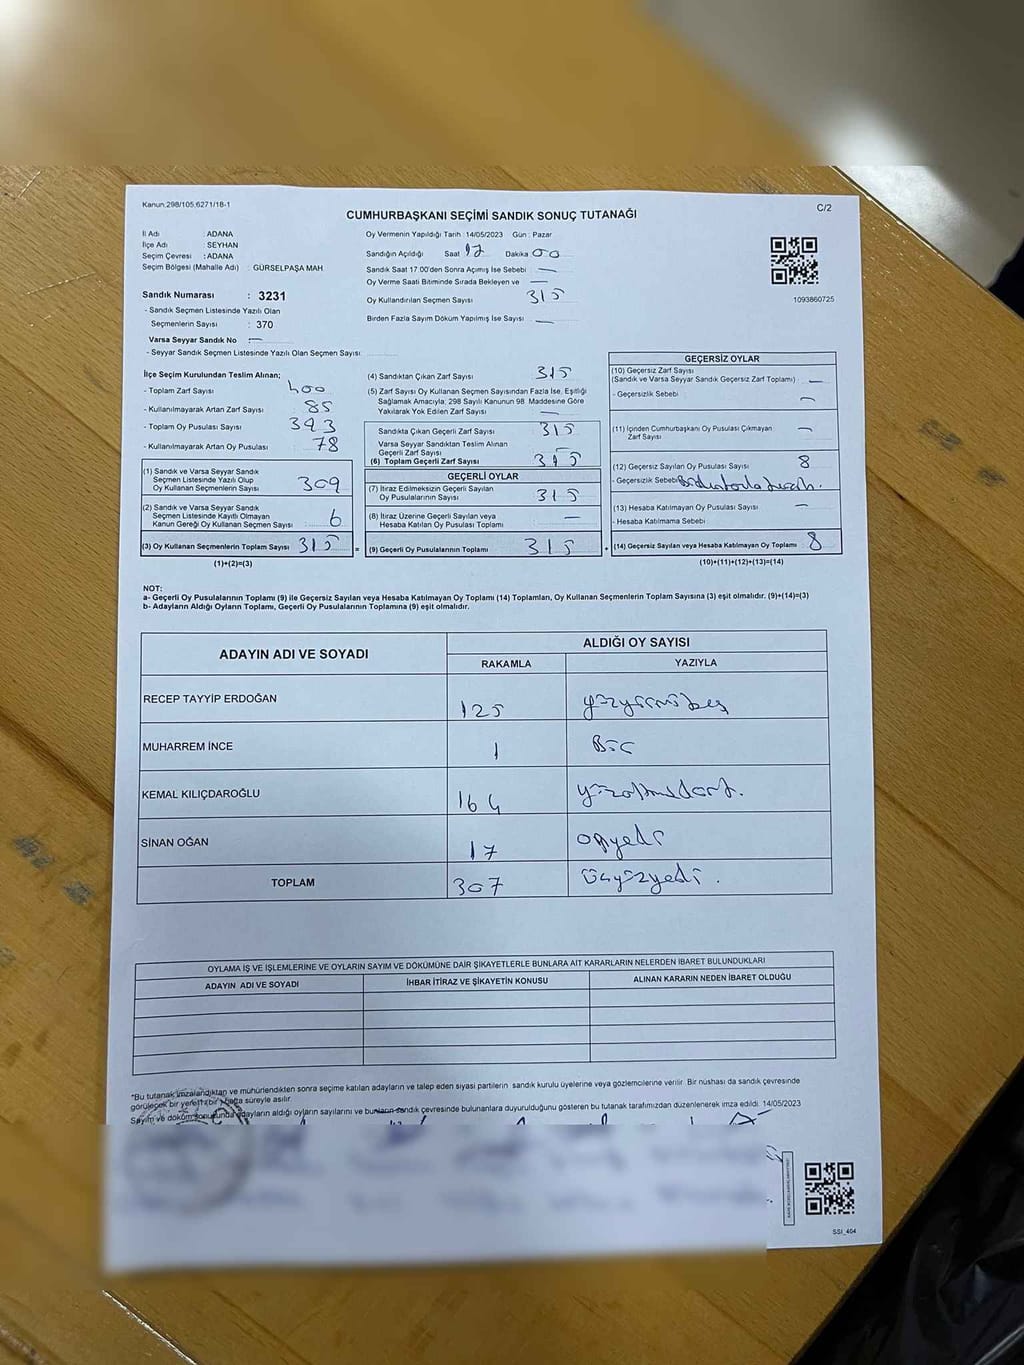 Kanun:298/105;6271/18-1
C/2
CUMHURBAŞKANI SEÇİMİ SANDIK SONUÇ TUTANAĞI
İl Adı : ADANA
İlçe Adı : SEYHAN
Seçim Çevresi : ADANA
Seçim Bölgesi (Mahalle Adı) : GÜRSELPAŞA MAH.
Sandık Numarası : 3231
- Sandık Seçmen Listesinde Yazılı Olan
Seçmenlerin Sayısı : 370
Varsa Seyyar Sandık No : —
- Seyyar Sandık Seçmen Listesinde Yazılı Olan Seçmen Sayısı:
Oy Vermenin Yapıldığı Tarih : 14/05/2023 Gün : Pazar
Sandığın Açıldığı Saat 17 Dakika 00
Sandık Saat 17.00'den Sonra Açımış İse Sebebi —
Oy Verme Saati Bitiminde Sırada Bekleyen ve —
Oy Kullandırılan Seçmen Sayısı 315
Birden Fazla Sayım Döküm Yapılmış İse Sayısı —
1093860725
İlçe Seçim Kurulundan Teslim Alınan;
- Toplam Zarf Sayısı : 400
- Kullanılmayarak Artan Zarf Sayısı : 85
- Toplam Oy Pusulası Sayısı : 393
- Kullanılmayarak Artan Oy Pusulası : 78
(1) Sandık ve Varsa Seyyar Sandık
Seçmen Listesinde Yazılı Olup
Oy Kullanan Seçmenlerin Sayısı : 309
(2) Sandık ve Varsa Seyyar Sandık
Seçmen Listesinde Kayıtlı Olmayan
Kanun Gereği Oy Kullanan Seçmen Sayısı : 6
(3) Oy Kullanan Seçmenlerin Toplam Sayısı : 315
(1)+(2)=(3)
(4) Sandıktan Çıkan Zarf Sayısı 315
(5) Zarf Sayısı Oy Kullanan Seçmen Sayısından Fazla İse, Eşitliği
Sağlamak Amacıyla; 298 Sayılı Kanunun 98. Maddesine Göre
Yakılarak Yok Edilen Zarf Sayısı : —
Sandıkta Çıkan Geçerli Zarf Sayısı 315
Varsa Seyyar Sandıktan Teslim Alınan
Geçerli Zarf Sayısı : —
(6) Toplam Geçerli Zarf Sayısı : 315
GEÇERLİ OYLAR
(7) İtiraz Edilmeksizin Geçerli Sayılan
Oy Pusulalarının Sayısı : 315
(8) İtiraz Üzerine Geçerli Sayılan veya
Hesaba Katılan Oy Pusulası Toplamı : —
= (9) Geçerli Oy Pusulalarının Toplamı : 315
GEÇERSİZ OYLAR
(10) Geçersiz Zarf Sayısı
(Sandık ve Varsa Seyyar Sandık Geçersiz Zarf Toplamı) : —
- Geçersizlik Sebebi : —
(11) İçinden Cumhurbaşkanı Oy Pusulası Çıkmayan
Zarf Sayısı : —
(12) Geçersiz Sayılan Oy Pusulası Sayısı : 8
- Geçersizlik Sebebi
(13) Hesaba Katılmayan Oy Pusulası Sayısı : —
- Hesaba Katılmama Sebebi :
+ (14) Geçersiz Sayılan veya Hesaba Katılmayan Oy Toplamı : 8
(10)+(11)+(12)+(13)=(14)
NOT:
a- Geçerli Oy Pusulalarının Toplamı (9) ile Geçersiz Sayılan veya Hesaba Katılmayan Oy Toplamı (14) Toplamları, Oy Kullanan Seçmenlerin Toplam Sayısına (3) eşit olmalıdır. (9)+(14)=(3)
b- Adayların Aldığı Oyların Toplamı, Geçerli Oy Pusulalarının Toplamına (9) eşit olmalıdır.
ADAYIN ADI VE SOYADI
ALDIĞI OY SAYISI
RAKAMLA YAZIYLA
RECEP TAYYİP ERDOĞAN 125 yüzyirmibeş
MUHARREM İNCE 1 Bir
KEMAL KILIÇDAROĞLU 164 yüzaltmışdört.
SİNAN OĞAN 17 onyedi
TOPLAM 307 üçyüzyedi.
OYLAMA İŞ VE İŞLEMLERİNE VE OYLARIN SAYIM VE DÖKÜMÜNE DAİR ŞİKAYETLERLE BUNLARA AİT KARARLARIN NELERDEN İBARET BULUNDUKLARI
ADAYIN ADI VE SOYADI İHBAR İTİRAZ VE ŞİKAYETİN KONUSU ALINAN KARARIN NEDEN İBARET OLDUĞU
"Bu tutanak imzalandıktan ve mühürlendikten sonra seçime katılan adayların ve talep eden siyasi partilerin sandık kurulu üyelerine veya gözlemcilerine verilir. Bir nüshası da sandık çevresinde
görülecek bir yere (bir) hafta süreyle asılır.
Sayım ve döküm sonucunda adayların aldığı oyların sayılarını ve bunların sandık çevresinde bulunanlara duyurulduğunu gösteren bu tutanak tarafımızdan düzenlenerek imza edildi. 14/05/2023
SSI_404